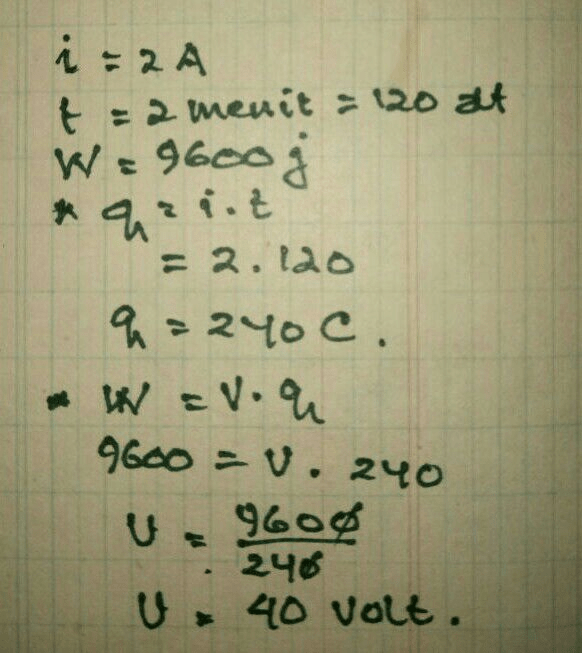 i = 2 A
t = 2 menit = 120 dt
W = 9600 j
* q = i . t
= 2 . 120
q = 240 C .
* W = V . q
9600 = V . 240
V = 9600/240
V = 40 Volt .